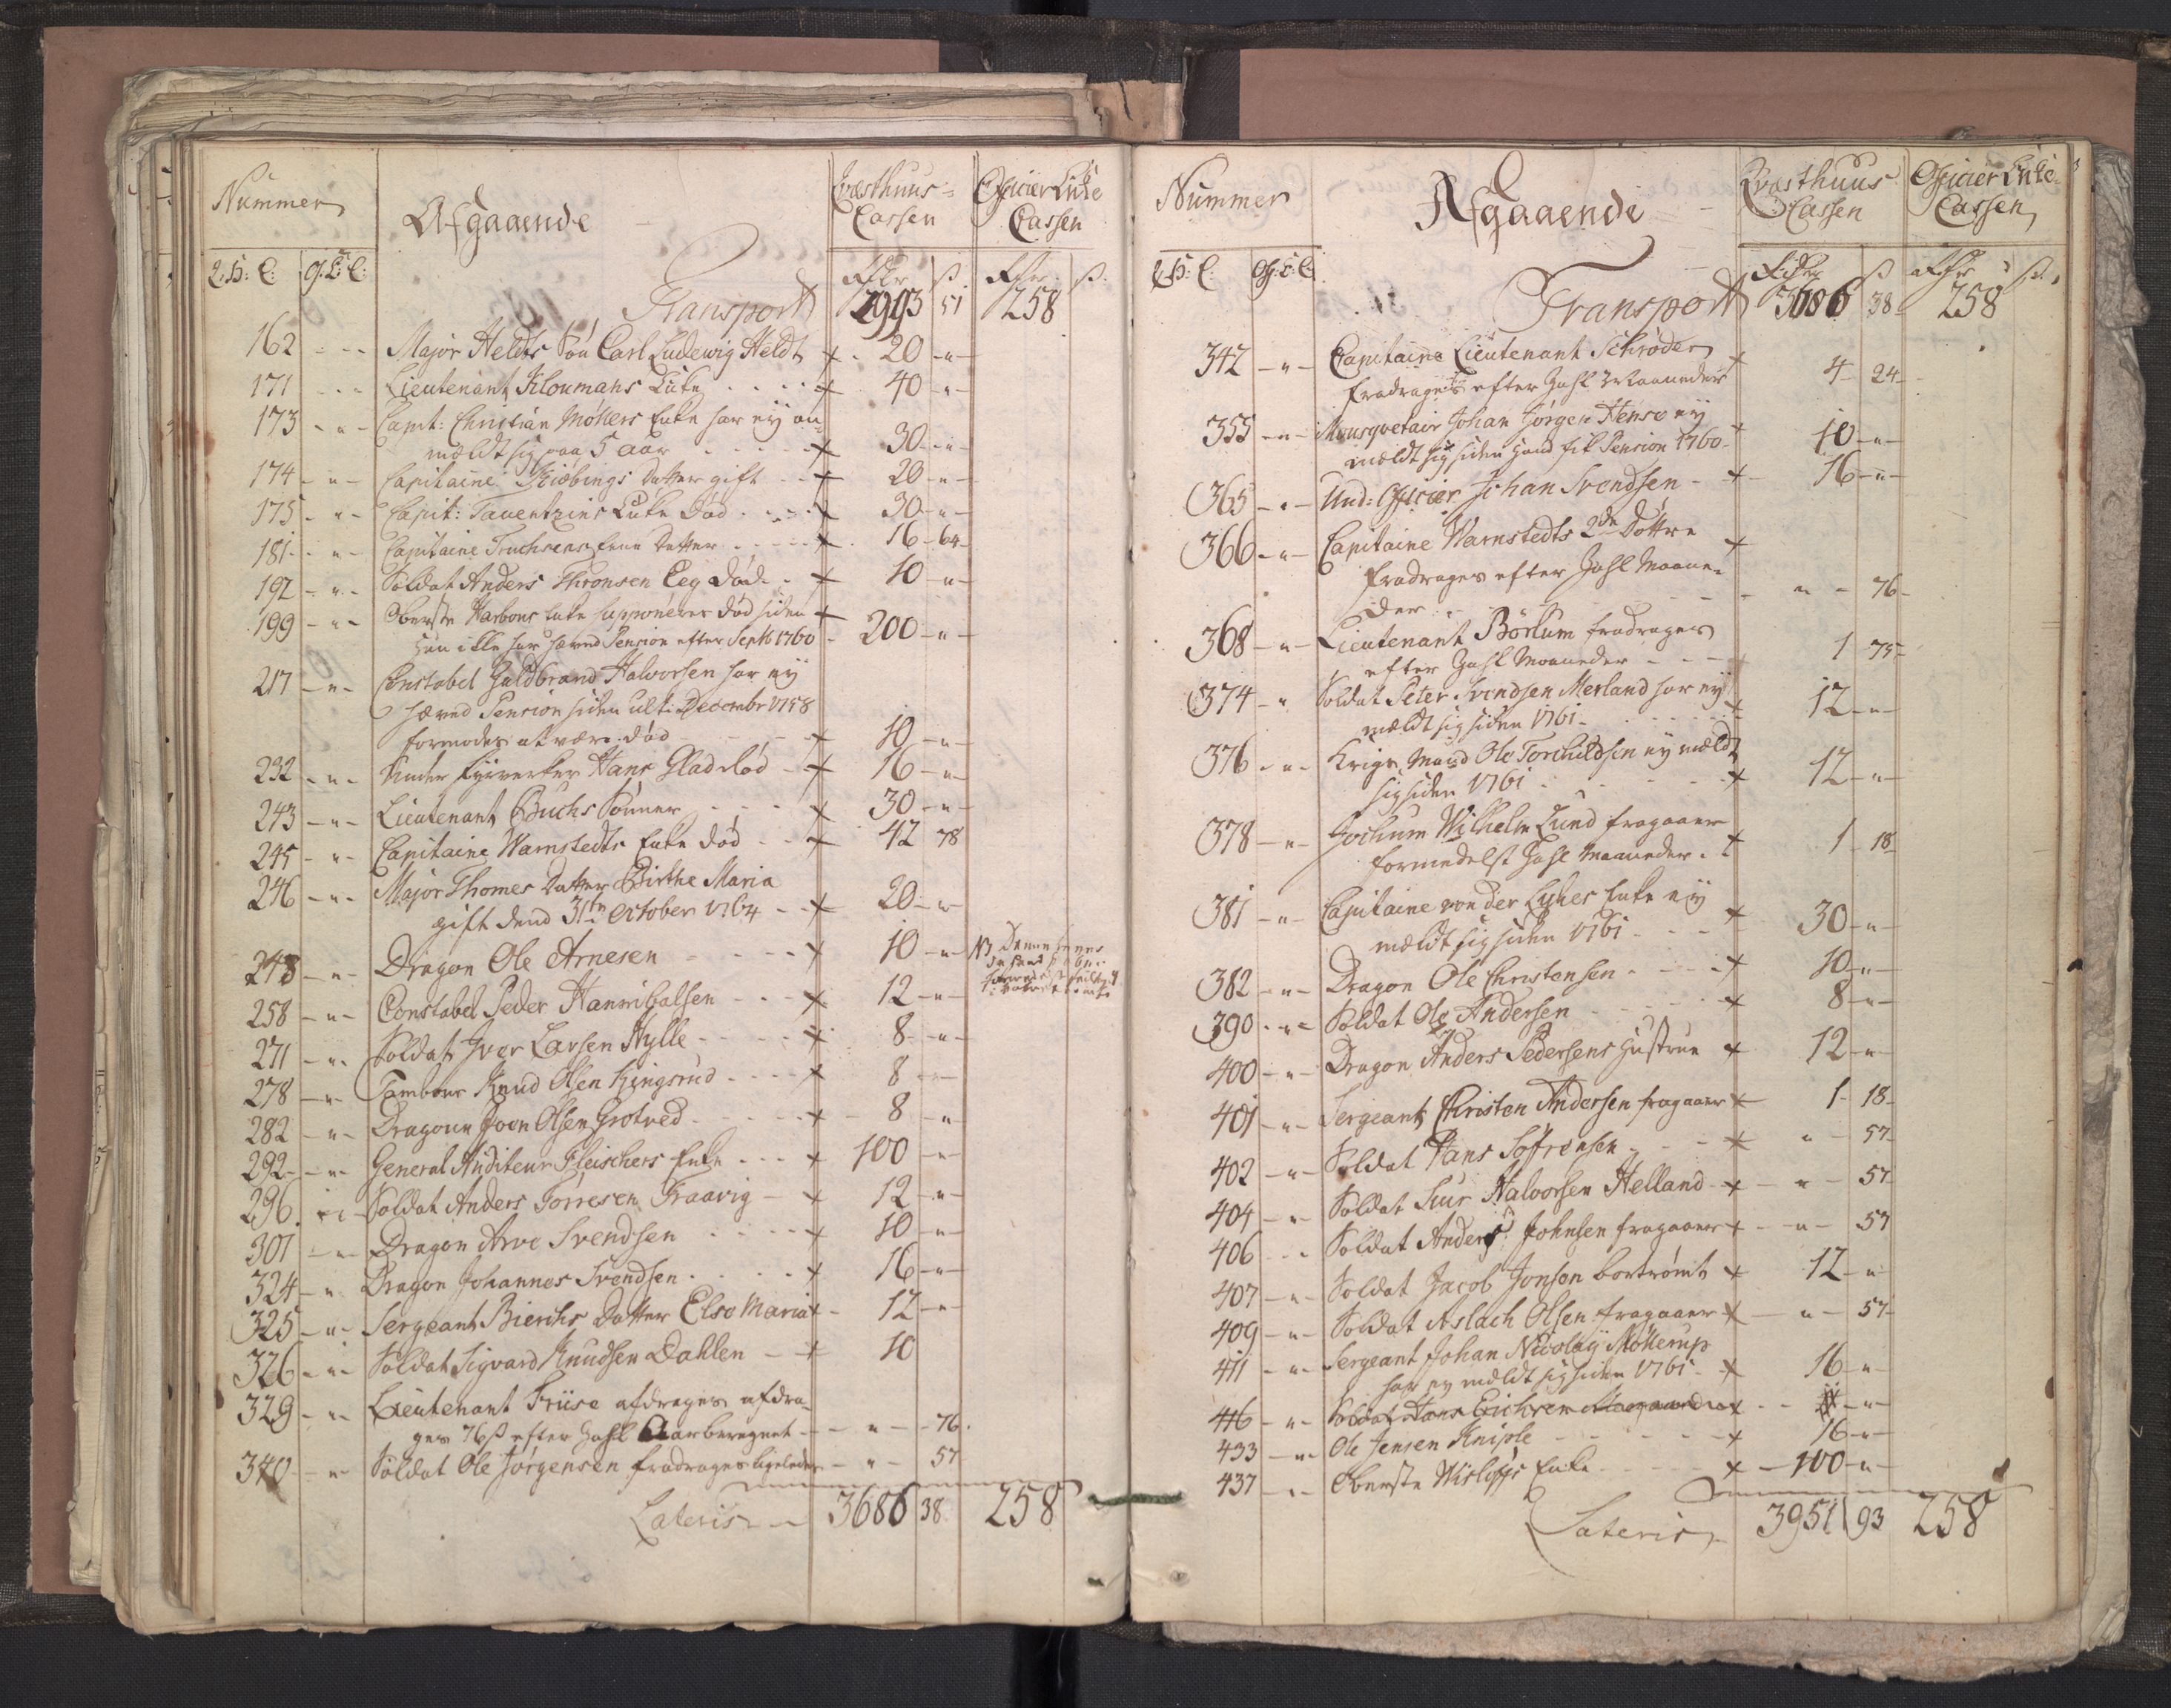 Nummer Afgaaende Qvæsthuus- Officier Enke
Cassen Cassen
Q:H:C: Of:E:C: Rdr ß Rdr ß.
Transport 2993 51 258
162 - - - Major Heldts Søn Carl Ludewig Heldt + - 20 - " -
171 - - - Lieutenant Kloumans Enke - - - - + 40 - " -
173 - " - Capit: Christian Møllers Enke har ey an-
mældt sig paa 5 aar - - - - - + 30 - " -
174 - " - Capitaine Kiøbings Datter gift - - + 20 - " -
175 - " - Capit: Tauentziens Enke død - - - - + 30 - " -
181 - " - Capitaine Truchsens eene Datter - - - - + 16 - 64 -
192 - " - Soldat Anders Thronsen Eeg død - - + 10 - " -
199 - " - Oberste Harboes Enke supponeres død siden +
hun ikke har hævet Pension efter Septb 1760 - 200 - " -
217 - " - Constabel Guldbrand Halvorsen har ey
hæved Pension siden ult: Decembr 1758
formodes at være død - - - - + 10 - " -
232 - " - Under Fyrverker Hans Glad død - + 16 - " -
243 - " - Lieutenant Buchs Sønner - - - - + 30 - " -
245 - " - Capitaine Warnstedts Enke død - - + 42 78
246 - " - Major Thomes Datter Birthe Maria
gift dend 31te October 1764 - - + 20 - " -
248 - " - Dragon Ole Arnesen - - - - - + 10 - " - NB denne
258 - " - Constabel Peder Hannibalsen - - - + 12 - " -
271 - " - Soldat Iver Larsen Hylle - - - - - + 8 - " -
278 - " - Tambour Knud Olsen Ringsrud - - - - + 8 - " -
282 - " - Dragoun Joen Olsen Grotved - - - - - + - 8 - " -
292 - " - General Auditeur Fleischers Enke - - - + 100 - " -
296 - " - Soldat Anders Torresen Fraavig - + 12 - " -
301 - " - Dragon Arve Svendsen - - - - - + 10 - " -
324 - " - Dragon Johannes Svendsen - - - - - + 16 - " -
325 - " - Sergeant Bierchs Datter Else Maria + - 12 - " -
326 - " - Soldat Sigvard Knudsen Dahlen - + 10
329 - " - Lieutenant Friise afdrages afdra-
ges 76 ß efter Hahl Aar beregnet - - " - - 76.
340 - " - Soldat Ole Jørgensen fradrages ligeledes - " - 57
Lateris - - 3686 38 258
Nummer Afgaaende Qvæsthuus Officier Enke
Cassen Cassen
Q:H:C: Of:E:C: Rdr ß Rdr ß.
Transport 3686 38 258
342 - " - Capitaine Lieutenant Schrøder +
fradrages efter Hahl Maaneder 4 24 -
355 - " - Mousqvetair Johan Jørgen Hense ey +
mældt sig siden hand fik Pension 1760 - 10 - " -
365 - " - Und: Officier Johan Svendsen - + 16 - " -
366 - " - Capitaine Warnstedts 2de Døttre +
fradrages efter Hahl Maane-
der - - - - - - - - - " - 76 -
368 - " - Lieutenant Børlum fradrages
efter Hahl Maaneder - - - + 1 75 -
374 - " Soldat Peter Svendsen Merland har ey
mældt sig siden 1761 - - - - - + 12 - " -
376 - " - Krigs Mand Ole Torchildsen ey mældt
sig siden 1761 - - - - - - + 12 - " -
378 - " - Jochum Wilhelm Lund fragaaer
formedelst Hahl Maaneder - + 1 18
381 - " - Capitaine von der Lyhes Enke ey
mældt sig siden 1761 - - - + 30 - " -
382 - " - Dragon Ole Christensen - - - - + 10 - " -
390 - " - Soldat Ole Andersen - - - - - + 8 - " -
400 - " - Dragon Anders Pedersens Hustrue + 12 - " -
401 - " - Sergeant Christen Andersen fragaaer + 1 - 18 -
402 - " - Soldat Hans Søfrensen - - - + " - 57 -
404 - " - Soldat Siur Halvorsen Helland - + - " - 57
406 - - - Soldat Anders Johnsen fragaaer + - " - 57
407 - " - Soldat Jacob Jonsen bortrømt + 12 - "
409 - " - Soldat Aslach Olsen fragaaer + - " - 57 -
411 - " - Sergeant Johan Nicolay Møllerup
har ey mældt sig siden 1761 - + 16 - " -
416 - " - Soldat Hans Erichsen + - - - " -
433 - " - Ole Jensen Kniple - - - - - + 16 - " -
437 - " - Oberste Wisløffs Enke - - - - + - 100 - " -
Lateris - 3951 93 258